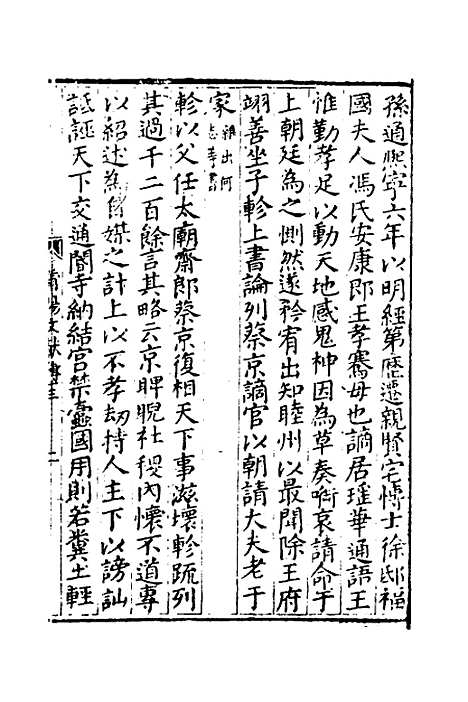 孫通熈寧六年以明經第歷遷親賢宅博士徐邸褚
國夫人馮氏安康郎王孝騫母也謫居瑤華通語王
惟勤孝足以動天地感鬼神因為草奏啣哀請命于
上朝廷為之惻然遂矜宥出知睦州以最聞除王府
翊善坐子軫上書論列蔡京謫官以朝請大夫老于
家雜出何志等書
軫以父任太廟齋郎蔡京復相天下事滋壞軫疏列
其過千二百餘言其略云京睥睨社稷內懷不道專
以紹述為自媒之計上以不孝刼持人主下以謗訕
詆誣天下交通閽寺納結宮禁蠹國用則若糞土輕
莆陽文獻傳三